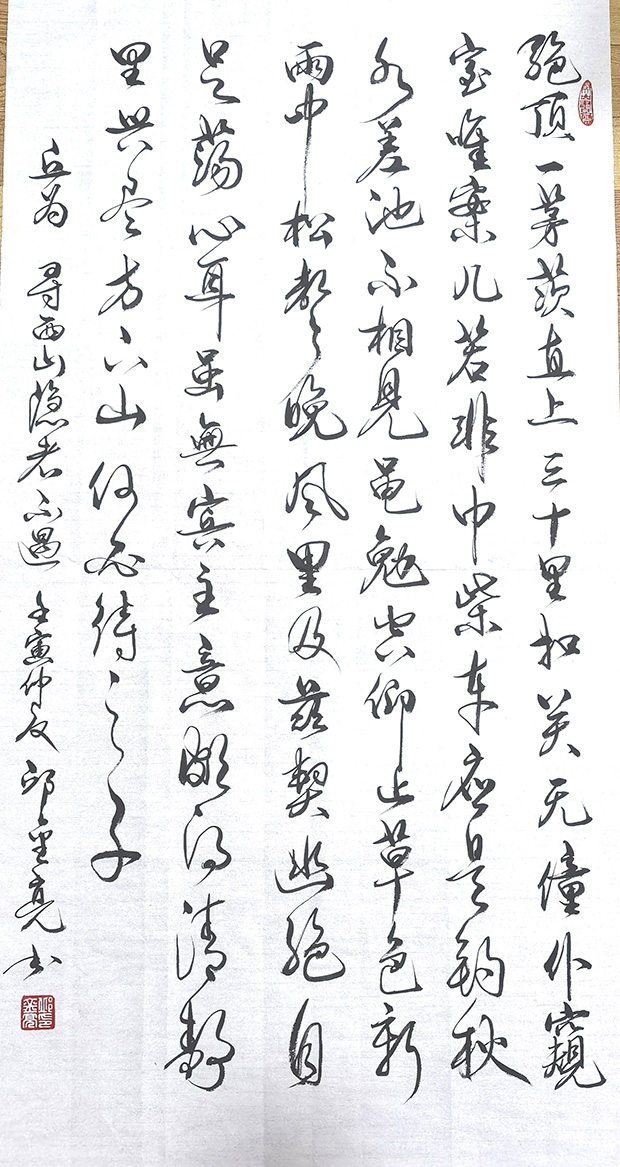 绝顶一茅茨直上三十里扣关无僮仆窥
室唯案几若非巾柴车应是钓秋
水差池不相見黾勉空仰止草色新
雨中松声晚风里及兹契幽绝自
足荡心耳虽無宾主意颇得清静
里兴尽方下山何必待之子
丘为 寻西山隐者不遇 壬寅仲夏 邱金亮书